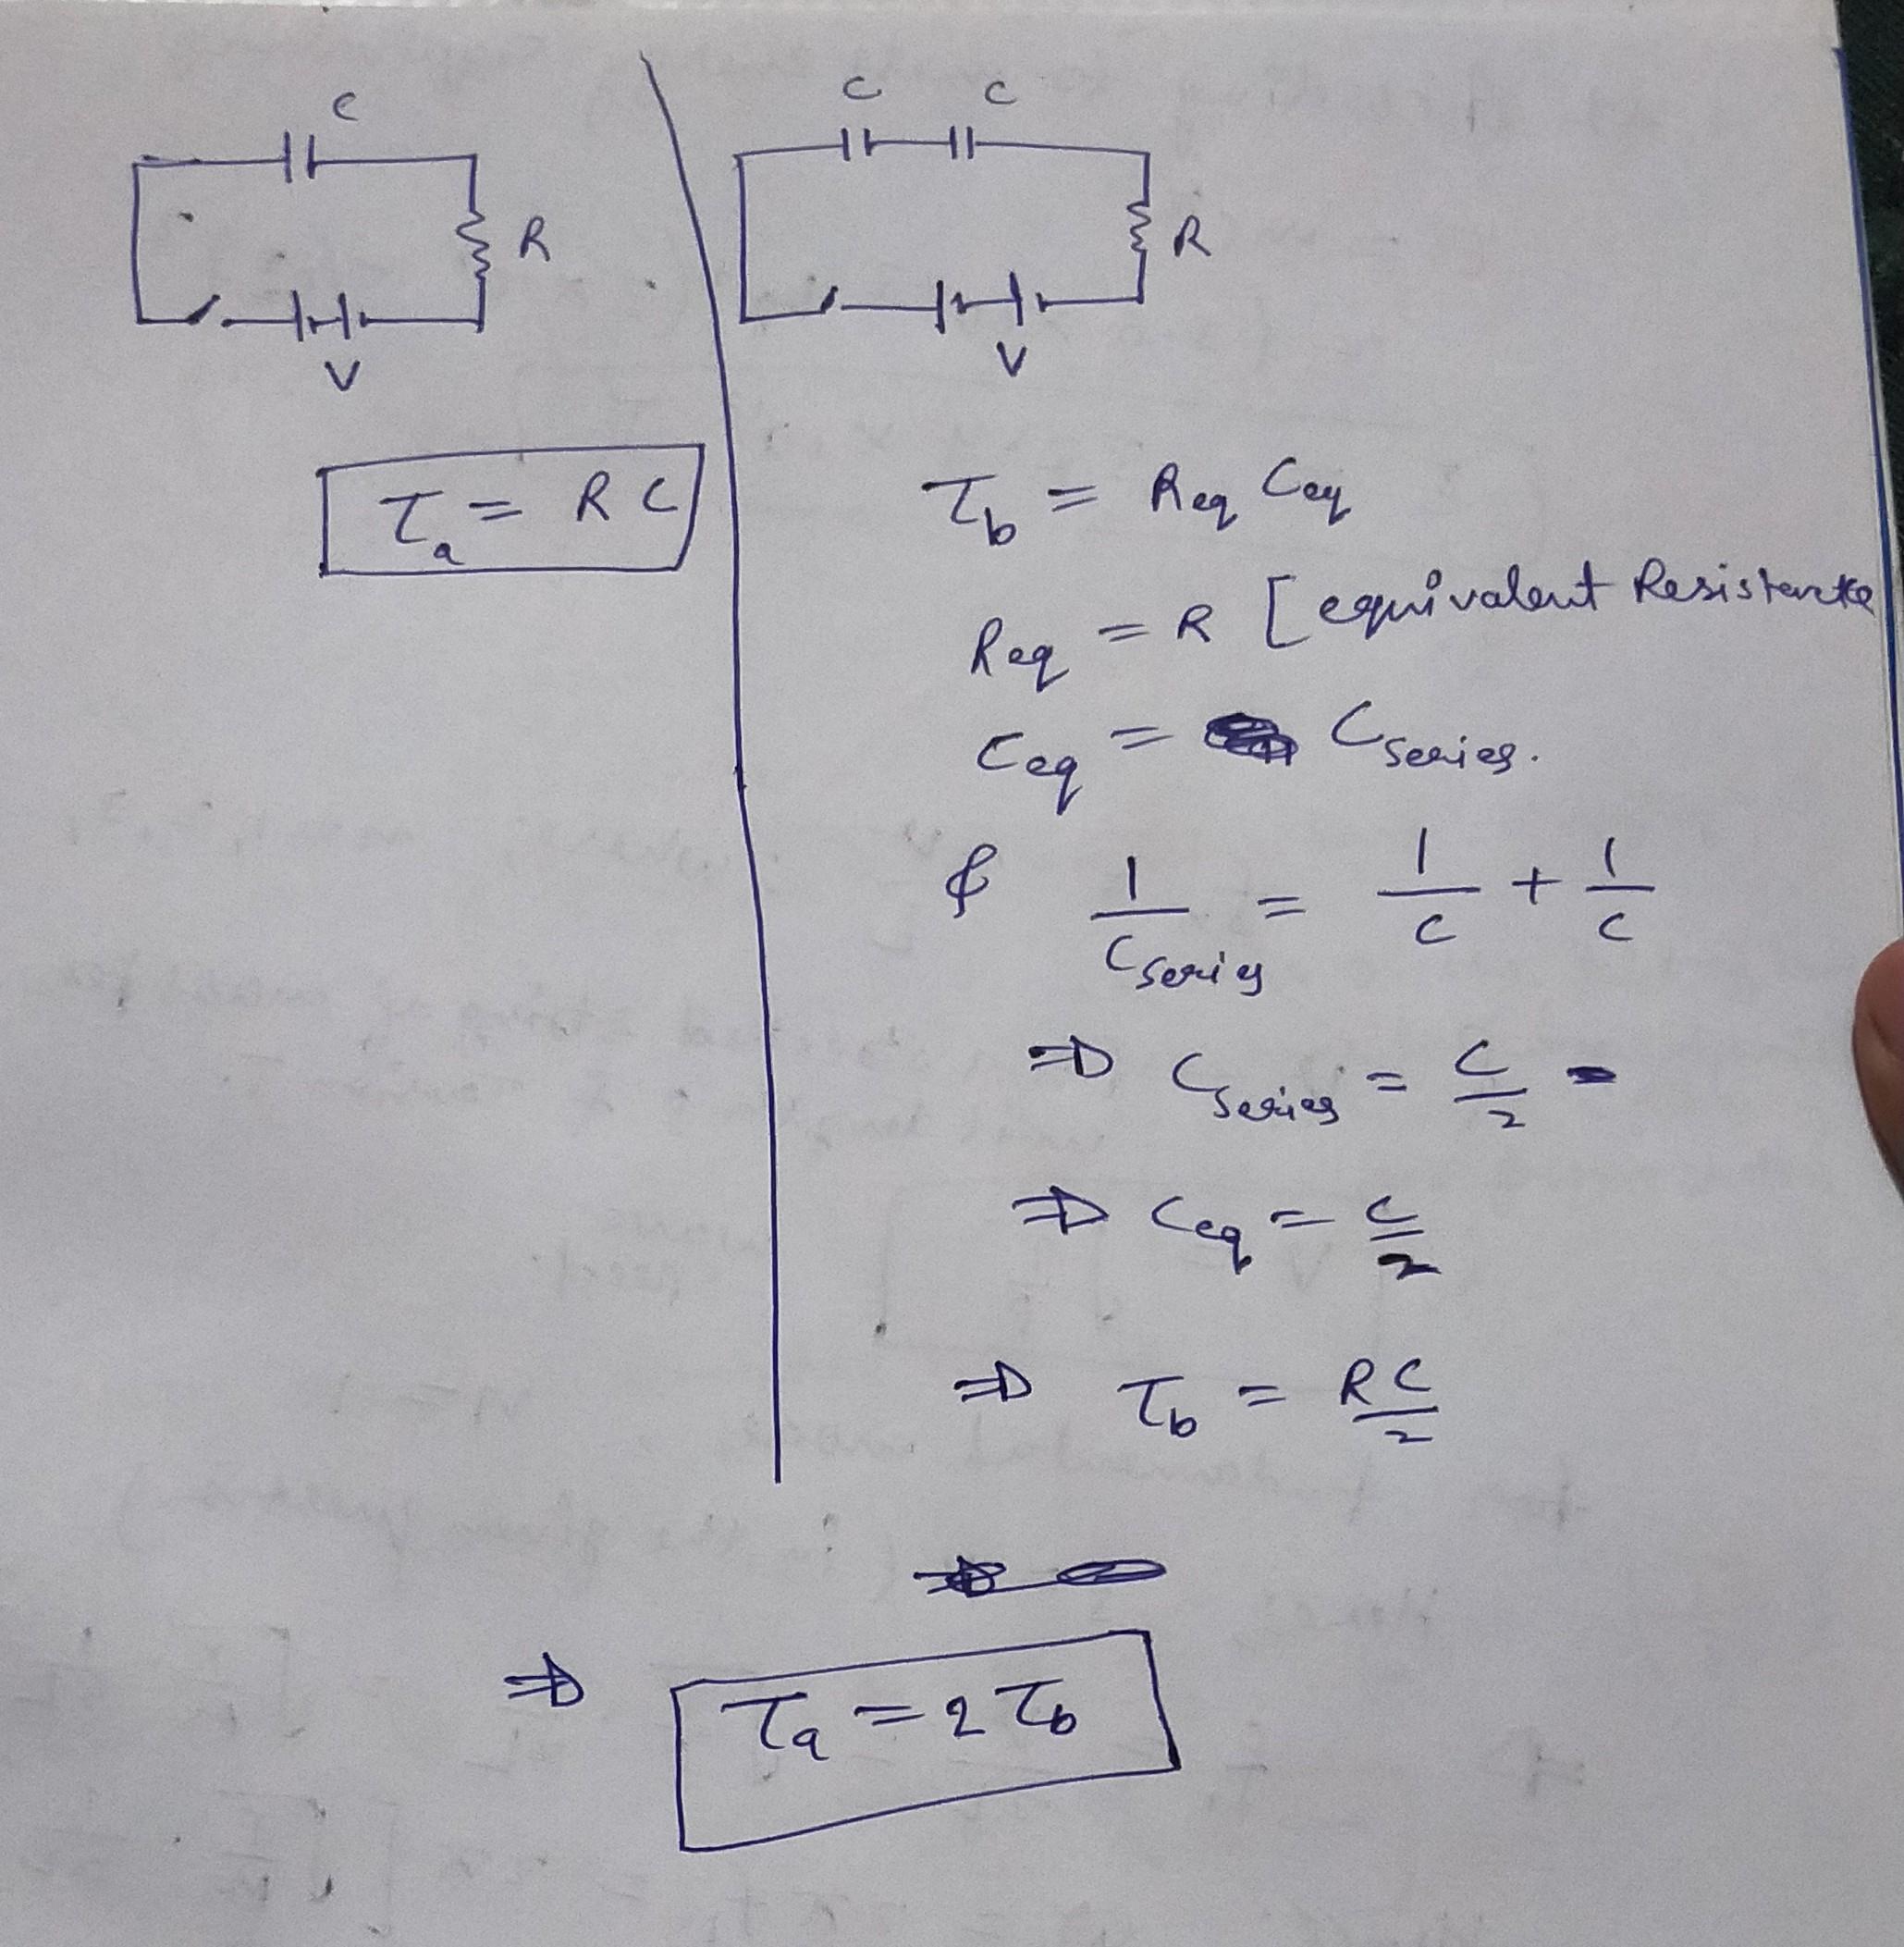 C
R
V
τₐ = RC
C C
R
V
τ_b = R_eq C_eq
R_eq = R [equivalent Resistance
C_eq = C_series.
& 1/C_series = 1/C + 1/C
⇒ C_series = C/2
⇒ C_eq = C/2
⇒ τ_b = RC/2
⇒ τₐ = 2τ_b